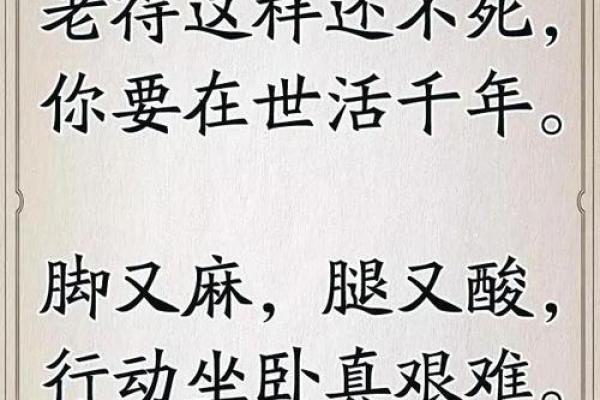 老得这样还不死，
你要在世活千年。
脚又麻，腿又酸，
行动坐卧真艰难。